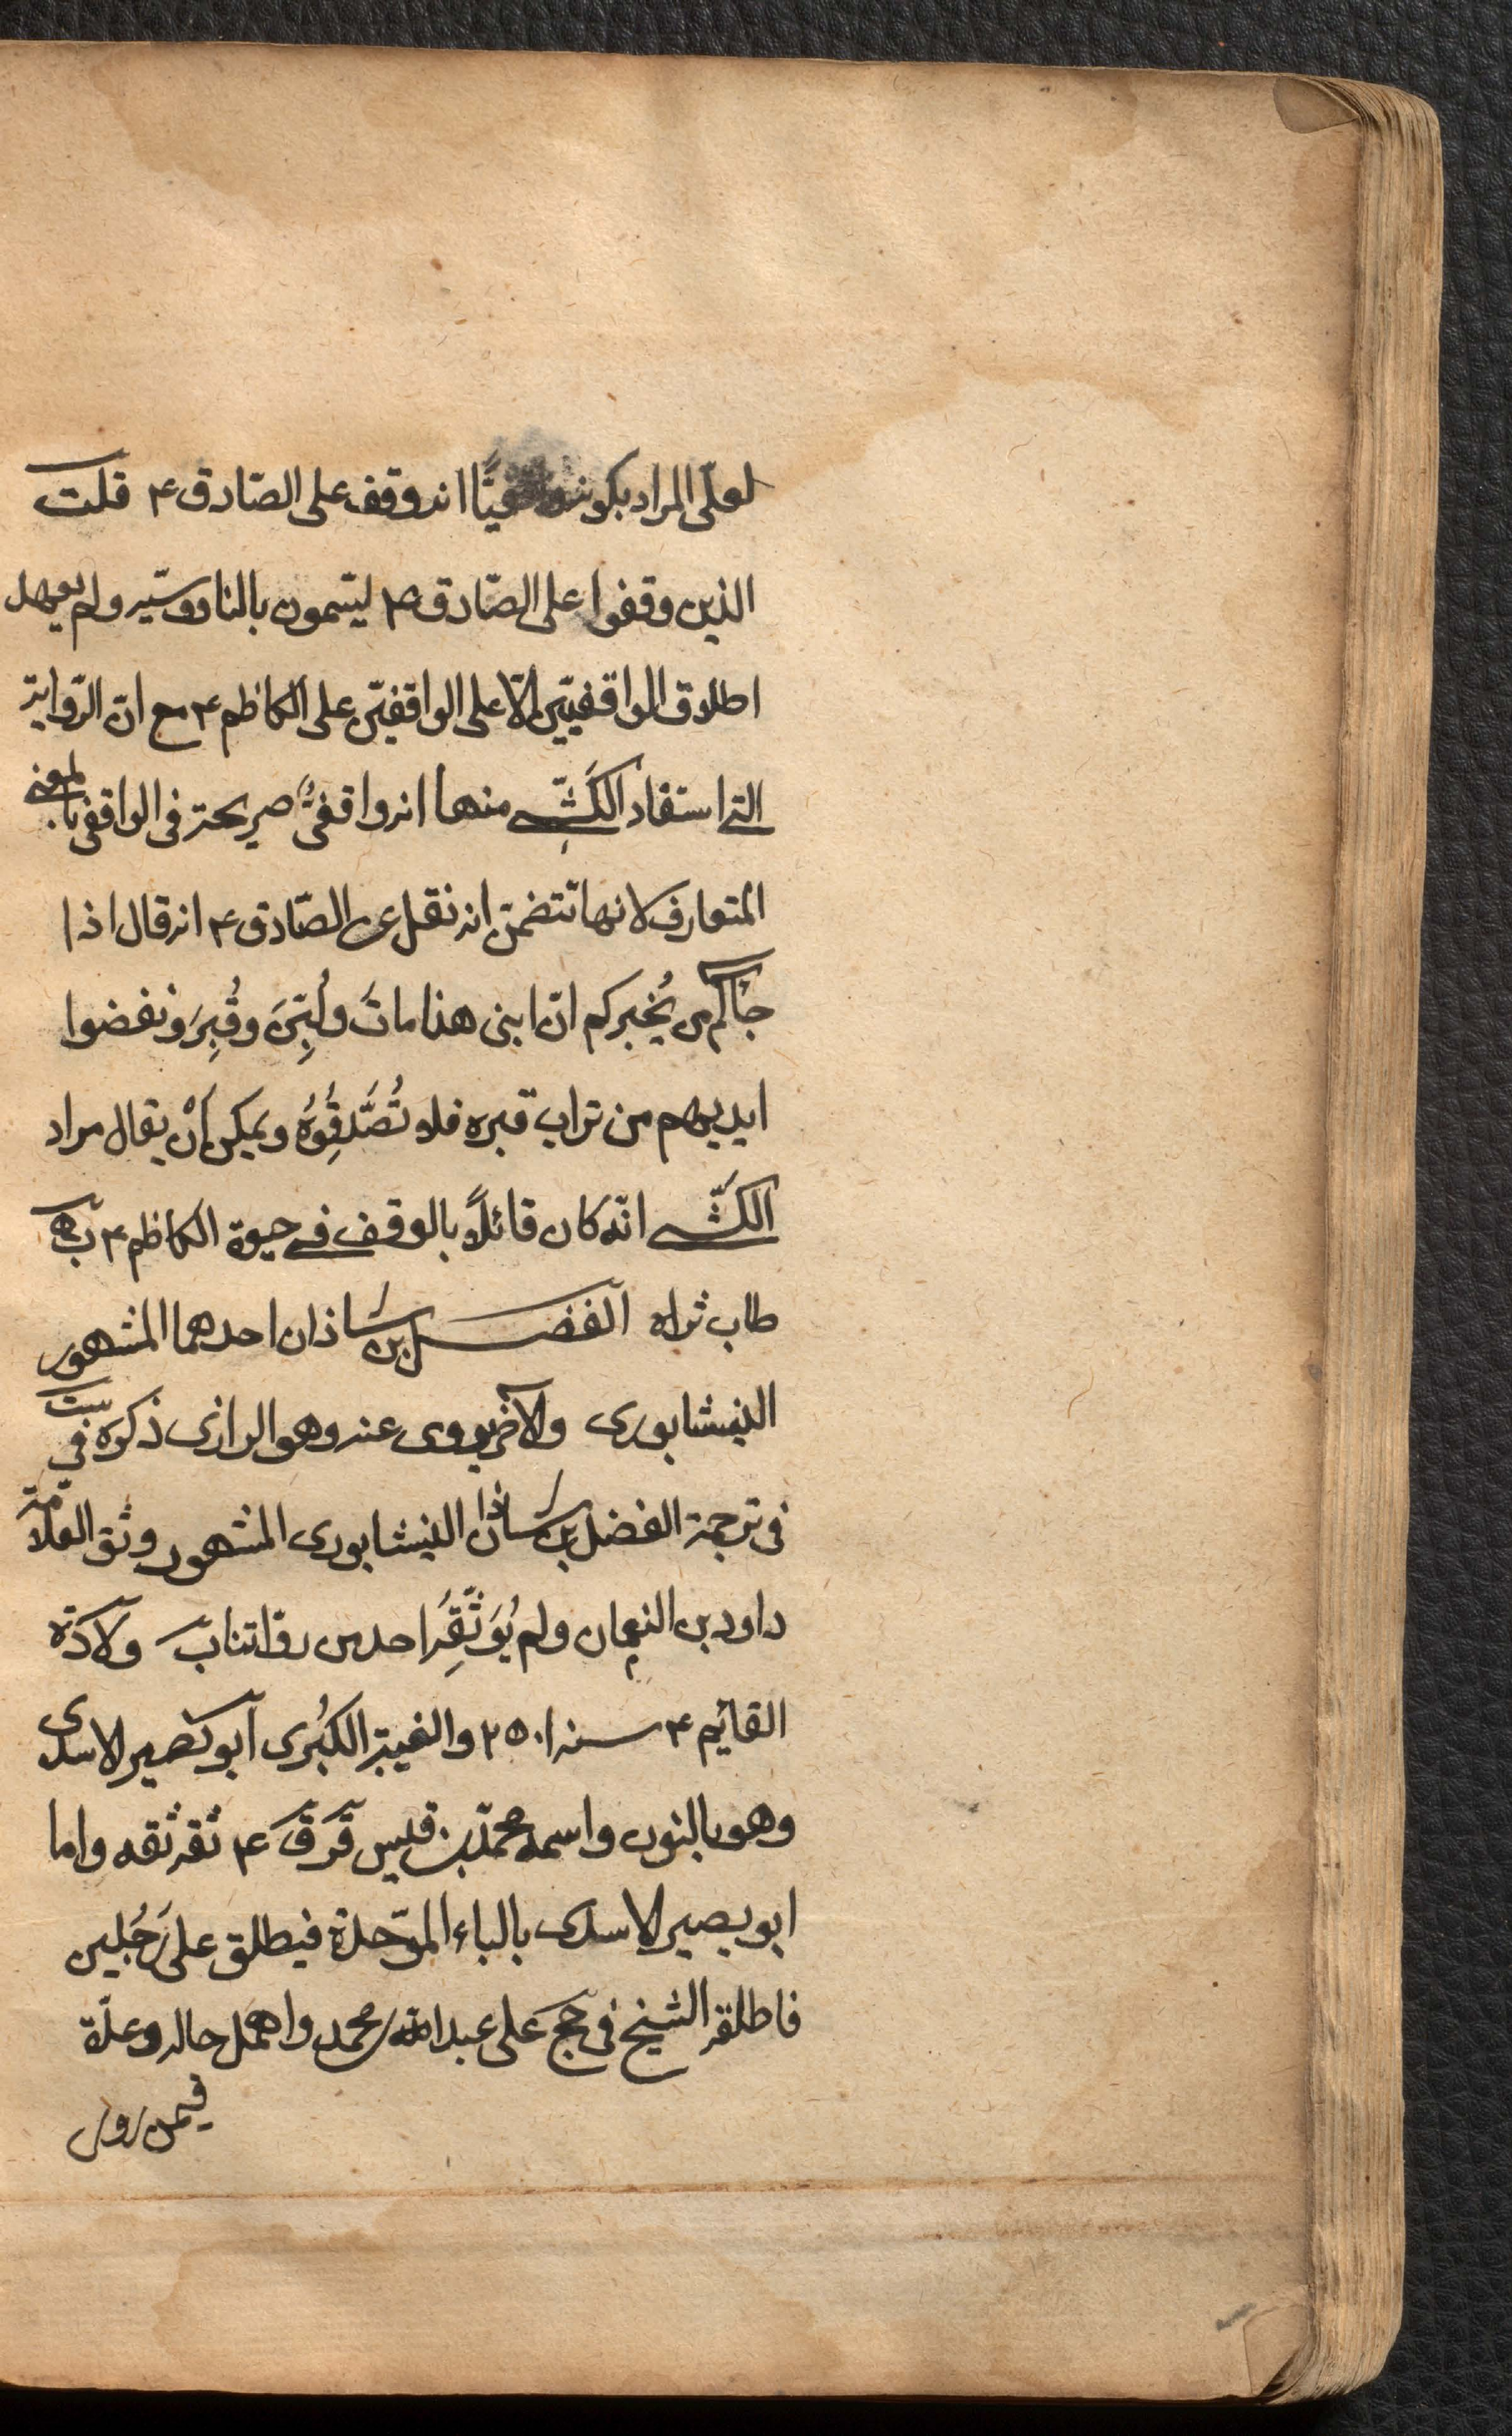 لعلّ المراد بكونه واقفيًّا انه وقف على الصّادق ۴ قلت
الذين وقفوا على الصّادق ۴ ليسّمون بالناووسيّه ولم يعهد
اطلاق الواقفيّين الّا على الواقفيّن على الكاظم ۴ مع انّ الرّوايه
التى استفاد الكَشّى منها انه واقفىٌّ صريحة فى الواقفى بالمعنى
المتعارف لانها تتضمّن انه نقل عن الصّادق ۴ انه قال اذا
جآئكم من يُخبركم انّ ابنى هذا ماتَ ولُبِّىَ وقُبِرَ ونفضوا
ايديهم من تراب قبره فلا تُصَّدقُوُهُ ويمكن أنْ يقال مراد
الكشّى انّه كان قائلاً بالوقف فى حيوة الكاظم ۴ ب‍ه
طاب ثراه الفضل بن شاذان احدهما المشهور
النيشابورى والآخر يروى عنه وهو الرازى ذكره فى ست
فى ترجمة الفضل بن شاذان النيشابورى المشهور وثق العلّامة
داود بن النعمان ولم يُوَثِّقِهُ احد من رواتنا ب‍ ولادة
القائم ۴ سنه ۲۵۰۱ والغيبة الكبُرى ابو نصير الاسدى
وهو بالنون واسمه محمّد بن قيس قَرَقَ ۴ ثقه ثقه واما
ابو بصير الاسدى بالباء الموّحدة فيطلق على رَجُلين
فاطلقه الشيخ فى جج على عبد الله بن محمد واهمل حاله وعدّه
فيمن روى